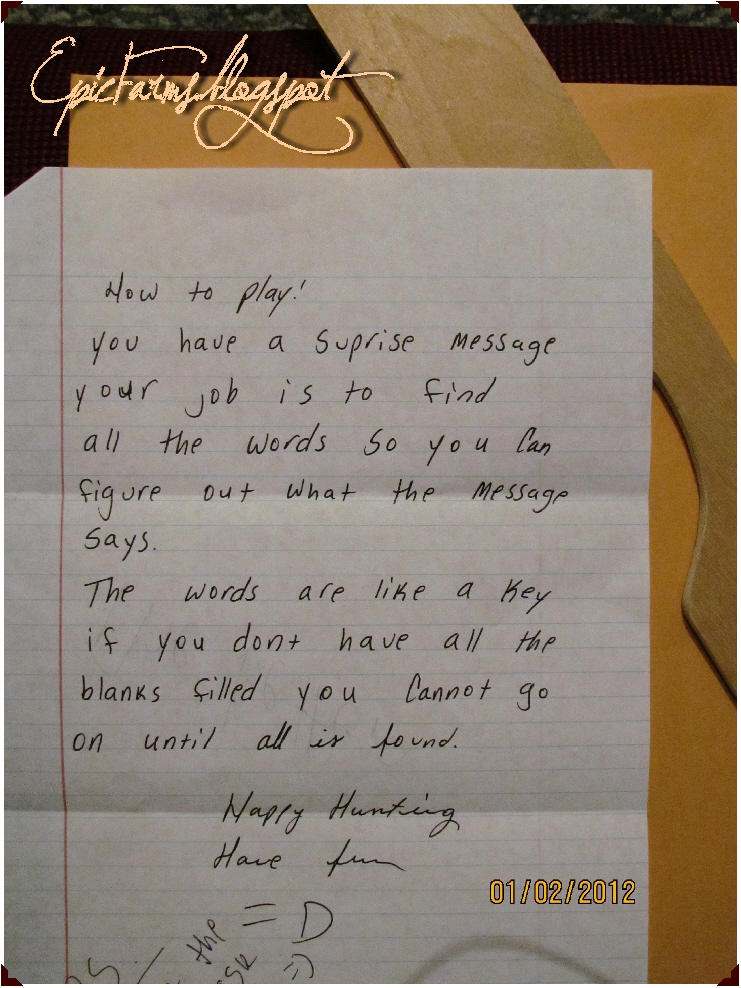 Epicfarms.blogspot
How to play!
you have a Suprise Message
your job is to find
all the words So you Can
figure out what the Message
Says.
The words are like a key
if you dont have all the
blanks filled you Cannot go
on until all is found.
Happy Hunting
Have fun
01/02/2012
= D
the
=)